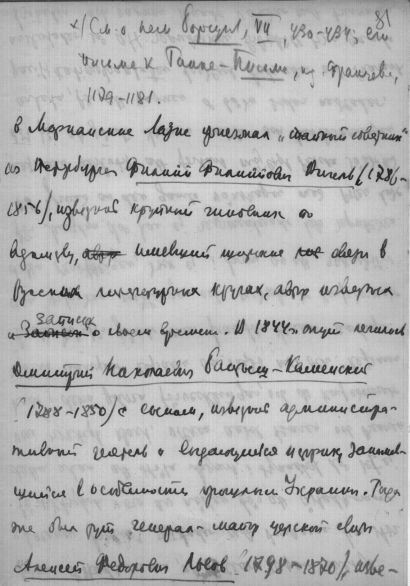 81
x/ См. о нем Борсук, VII, 430-434; его
письма к Ганке – Письма, изд. Францева,
1179-1181.
в Марианские Лазне приезжал „статный советник"
из Петербурга Филипп Филиппович Вигель (1786-
1856), известный крупный чиновник по
, имевший широкие связи в
русских литературных кругах, автор известных
„Записок о своем времени. В 1844 г. опять лечились
Дмитрий Николаевич Бантыш-Каменский
(1788-1850) с сыном, известный администра-
тивный деятель и выдающийся историк, занимав-
шийся в особенности прошлым Украины. Тогда
же был тут генерал-майор царской свиты
Алексей Федорович Львов (1798-1870), изве-